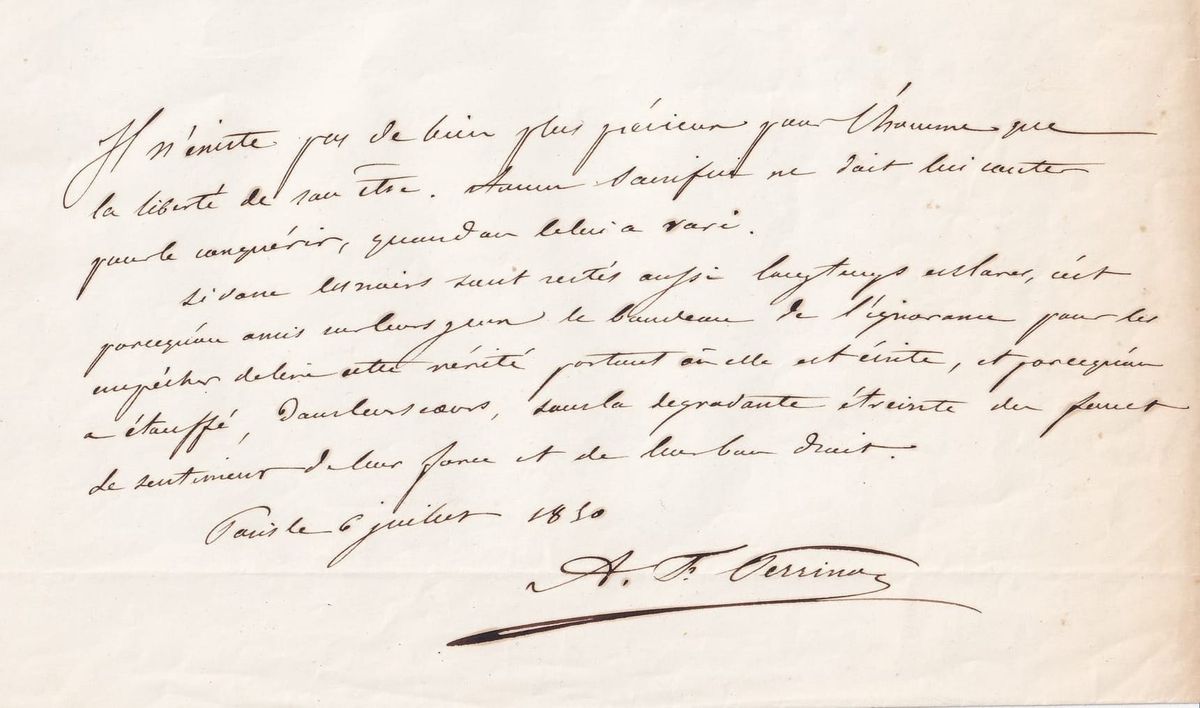 Il n'éxiste pas de bien plus précieux pour l'homme que
la liberté de son être. Aucun Sacrifice ne doit lui couter
pour le conquérir, quand on le lui a ravi.
Si donc les noirs sont restés aussi longtemps esclaves, c'est
parcequ'on a mis sur leurs yeux le bandeau de l'ignorance pour les
empêcher de lire cette vérité partout où elle est écrite, et parcequ'on
a étouffé, dans leurs coeurs, sous la degradante étreinte du fouet
le sentiment de leur force et de leur bon droit.
Paris le 6 juillet 1850
A. F. Perrinon